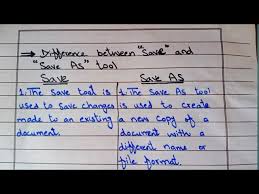 → Difference between "Save" and
"Save As" tool
Save
Save As
1. The save tool is
used to save changes
made to an existing
document.
1. The Save As tool
is used to create
a new copy of a
document with a
different name or
file format.